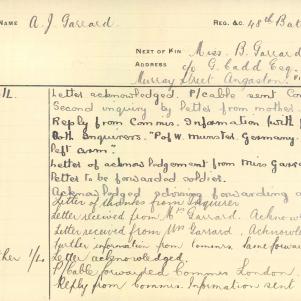 NAME A. J. Garrard REG. &C. 48th Bat
NEXT OF KIN Miss. B. Garrard
ADDRESS c/o G. Cadd Esq.
Murray Street Angaston.
Letter acknowledged. P/cable sent Com
Second inquiry by letter from mother
Reply from Commis. Information (with
Both Inquirers. "P of W. Munster. Germany.
left arm".
Letter of acknowledgement from Miss Garra
Letter to be forwarded soldier.
Acknowledged advising forwarding a
Letter of thanks from Inquirer
Letter received from Mrs Garrard. Acknow
Letter received from Garrard, Acknowle
Further information from Commrs same forwar
ther Letter acknowledged.
P/Cable forwarded Commrs London
Reply from Commrs. Information sent